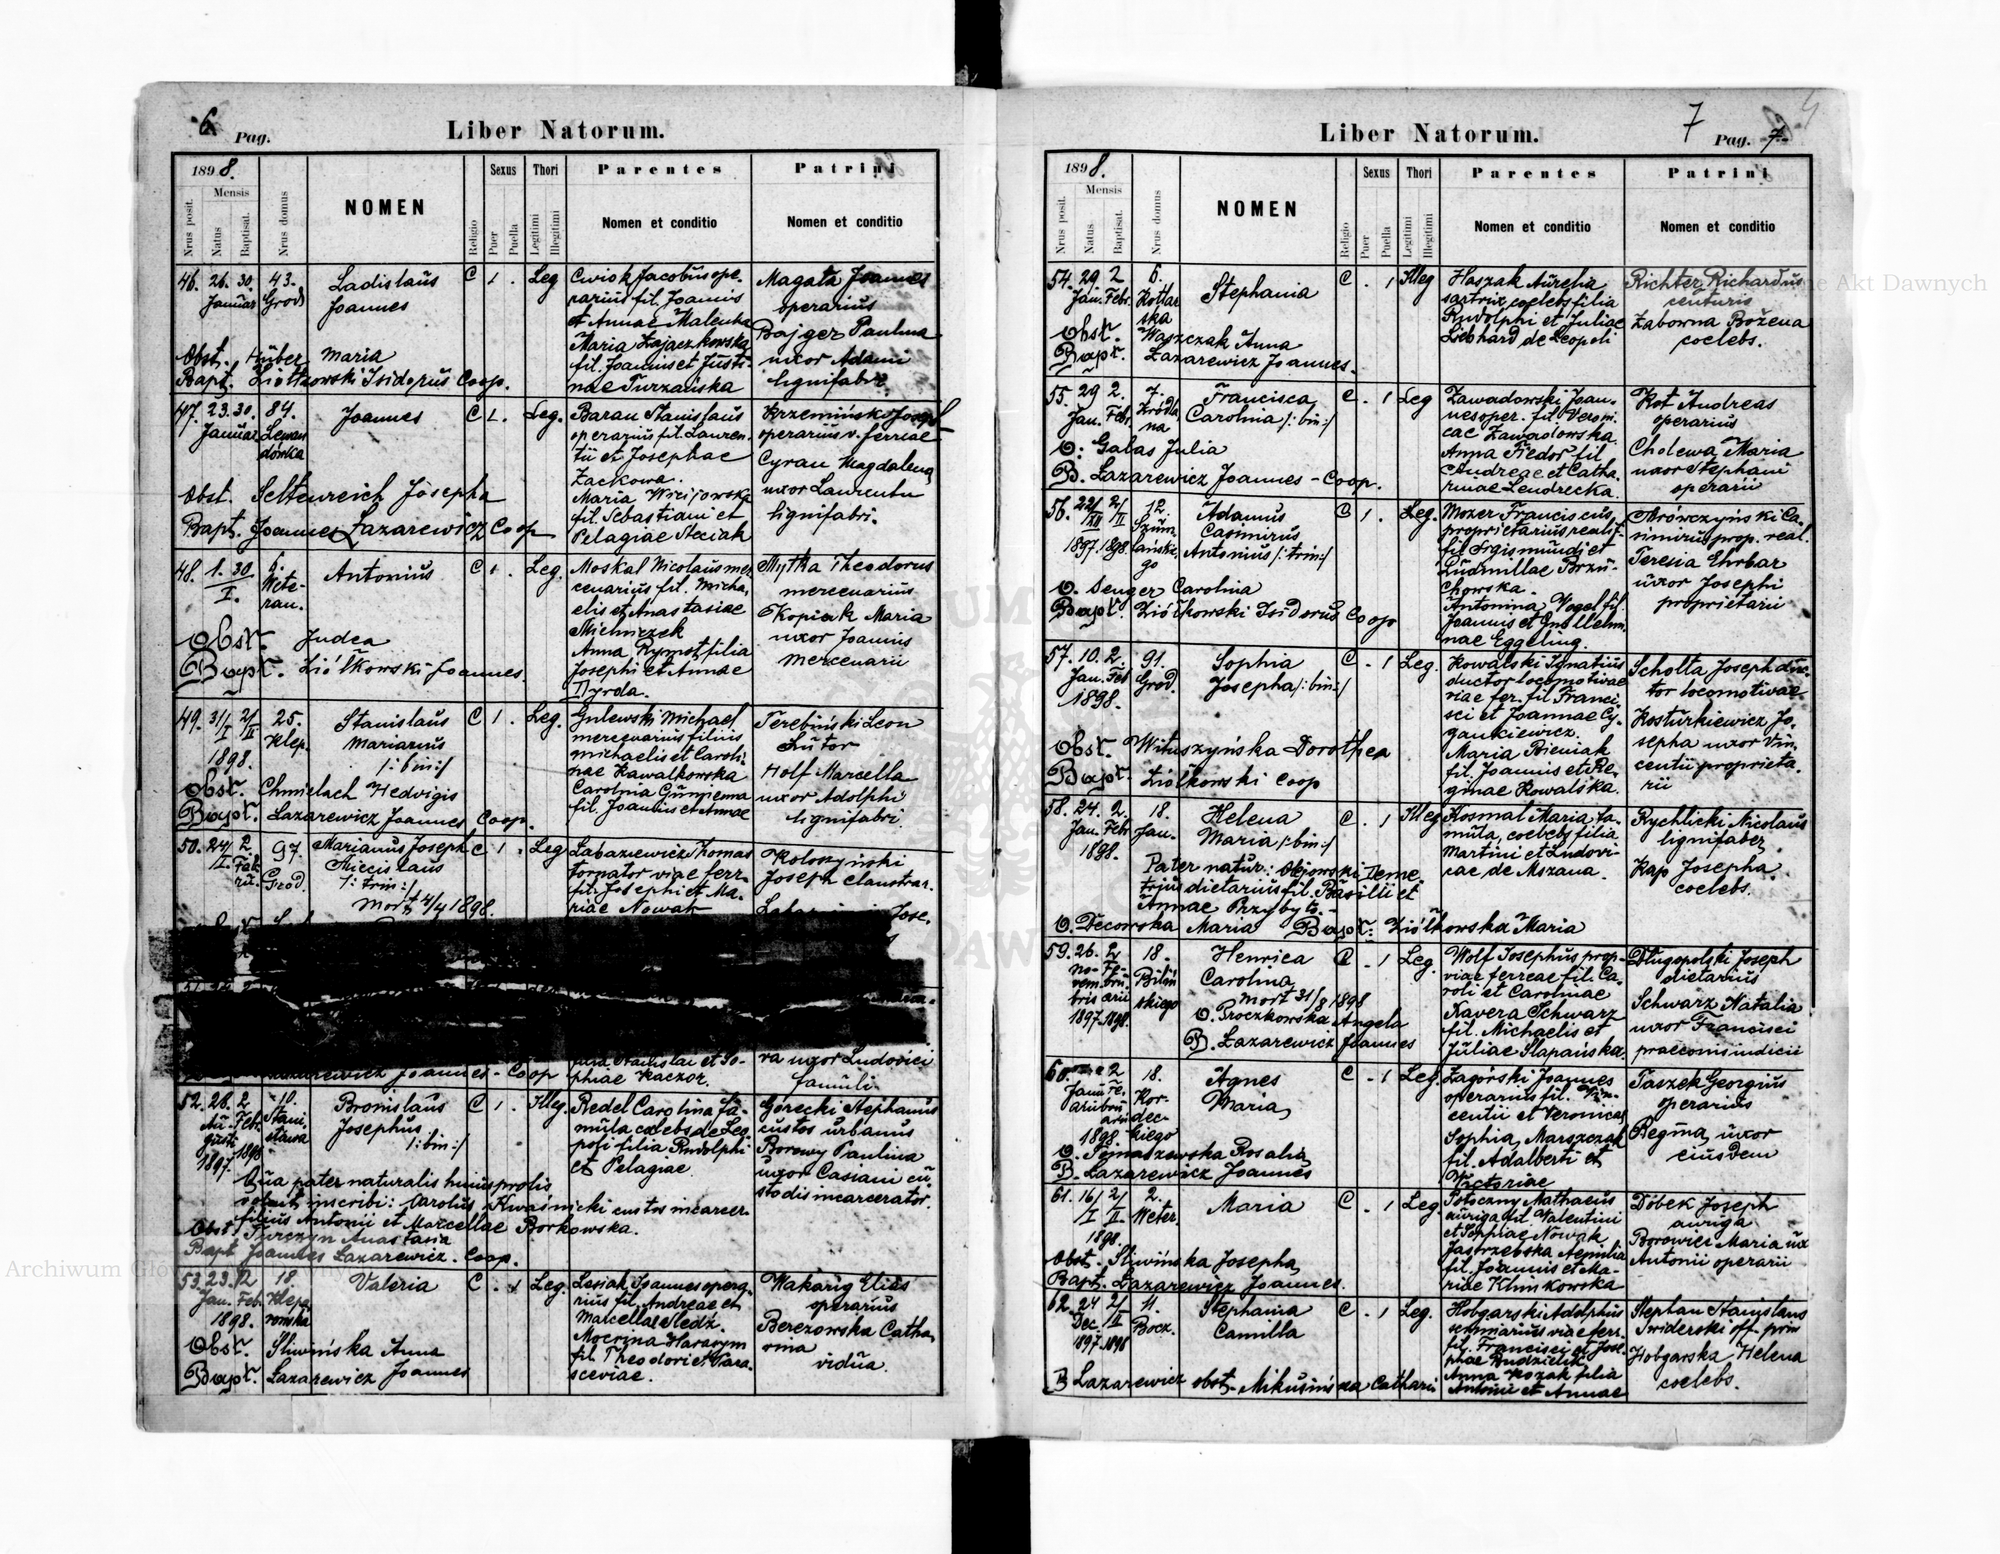 6
Pag.
Liber Natorum.
1898.
Nrus posit.
Mensis
Natus
Baptisat.
Nrus domus
NOMEN
Religio
Sexus
Puer
Puella
Thori
Legitimi
Illegitimi
Parentes
Nomen et conditio
Patrini
Nomen et conditio
46. 26. 30. 43.
Januar Grod
Ladislaus
Joannes
C 1 . Leg
Cwiok Jacobus ope-
rarius fil. Joannis
et Annae Malenka
Maria Zajaczkowska
fil. Joannis et Justi-
nae Turzańska
Magata Joannes
operarius
Bajger Paulina
uxor Adami
lignifabri
Obst. Hüber Maria
Bapt. Ziółkowski Isidorus Coop.
47. 23. 30. 84.
Januar Lewan
dówka
Joannes
C 1. Leg.
Baran Stanislaus
operarius fil. Lauren-
tii et Josephae
Zackowa.
Maria
fil. Sebastiani et
Pelagiae Steciak
Krzemińsko Joseph
operarius v. ferreae
Cyran Magdalena
uxor Laurentii
lignifabri.
Obst. Seltenreich Josepha
Bapt. Joannes Lazarewicz Coop
48. 1. 30 6.
I. Wete-
ran.
Antonius
C 1. Leg.
Moskal Nicolaus mer-
cenarius fil. Micha-
elis et Anastasiae
Michniczek
Anna Rympst filia
Josephi et Annae
Dyrda.
Mytka Theodorus
mercenarius
Kopiak Maria
uxor Joannis
mercenarii
Obst. Judea
Bapt. Ziółkowski Joannes.
49. 31/I 2/II 25.
1898. Klep.
Stanislaus
Marianus
/:bin:/
C 1. Leg.
Gulewski Michael
mercenarius filius
Michaelis et Caroli-
nae Kawalkowska
Carolina
fil. Joannis et Annae
Terebiński Leon
sutor
Holf Marcella
uxor Adolphi
lignifabri.
Obst. Chmielach Hedvigis
Bapt. Lazarewicz Joannes Coop.
50. 24/ 2 97.
Grod.
Marianus Joseph
Miecislaus
/:trin:/
Mort 4/4 1898.
C 1 . Leg
Labaziewicz Thomas
tornator viae ferr-
fil. Josephi et Ma-
riae Nowak
Koloszyński
Joseph claustrar.
Jose-
Joannes - Coop
fil. Stanislai et So-
phiae Kaczor.
ra uxor Ludovici
famuli.
52. 28. 2 10.
Au- Febr. Stani-
gusti 1898 sława
1897.
Bronislaus
Josephus
/:bin:/
C 1. Illeg
Redel Carolina fa-
mula coelebs de Leo-
poli filia Rudolphi
et Pelagiae
Górecki Stephanus
custos urbanus
Borowy Paulina
uxor Casiani cu-
stodis incarcerator.
Qua pater naturalis huius prolis
voluit inscribi: Carolus Kwaśnicki custos incarcer-
filius Antonii et Marcellae Borkowska.
Obst. Turczyn Anastasia
Bapt Joannes Lazarewicz. Coop.
53. 23. 2 18.
Jan. Feb. Klepa
1898. rowska
Valeria
C . 1 Leg.
Lesiak Joannes opera-
rius fil. Andreae et
Marcellae Sledź.
Mocrina Harasym
fil. Theodori et Para-
sceviae.
Wakarig Elias
operarius
Berezowska Catha-
rina
vidua.
Obst. Sliwińska Anna
Bapt. Lazarewicz Joannes
Liber Natorum.
7
Pag. 7.
1898.
Nrus posit.
Mensis
Natus
Baptisat.
Nrus domus
NOMEN
Religio
Sexus
Puer
Puella
Thori
Legitimi
Illegitimi
Parentes
Nomen et conditio
Patrini
Nomen et conditio
54. 29 2 6.
Jan. Febr. Kotlar
ska
Stephania
C . 1 Illeg
Haszak Aurelia
sartrix coelebs filia
Rudolphi et Juliae
Liebhard de Leopoli
Richter Richardus
centuris
Zaborna Bożena
coelebs.
Obst. Waszczak Anna
Bapt. Lazarewicz Joannes.
55. 29 2. 7.
Jan. Feb. Źródla
na
Francisca
Carolina /:bin:/
C . 1 Leg
Zawadowski Joan-
nes oper. fil. Veroni-
cae Zawadowska.
Anna Fiedor fil
Andreae et Catha-
rinae Lendrecka.
Kot Andreas
operarius
Cholewa Maria
uxor Stephani
operarii
O: Galas Julia
B. Lazarewicz Joannes - Coop.
56. 22/XII 2/II 12.
1897. 1898.
Szum-
lańskie-
go
Adamus
Casimirus
Antonius /:trin:/
C 1. Leg.
Mozer Franciscus
proprietarius realit-
fil. Sigismundi et
Ludmillae Brzu-
chowska.
Antonina Vogel fil.
Joannis et Guilelmi-
nae Eggeling.
Mrówczyński Ca-
simirus prop. real.
Teresia Ehrbar
uxor Josephi
proprietarii
O. Senger Carolina
Bapt. Ziółkowski Isidorus Coop
57. 10. 2. 91.
Jan. Feb Grod.
1898.
Sophia
Josepha /:bin:/
C . 1 Leg.
Kowalski Ignatius
ductor locomotivae
viae fer. fil. Franci-
sci et Joannae Cy-
gankiewicz.
Maria Bieniak
fil. Joannis et Re-
ginae Kowalska.
Scholta Joseph duc-
tor locomotivae
Kosturkiewicz Jo-
sepha uxor Vin-
centii proprieta-
rii
Obst. Wituszyńska Dorothea
Bapt. Ziółkowski Coop
58. 24. 2. 18.
Jan. Febr Jan.
1898.
Helena
Maria /:bin:/
C . 1 Illeg
Kosmal Maria fa-
mula, coelebs filia
Martini et Ludovi-
cae de Mszana.
Rychlicki Nicolaus
lignifaber
Kap Josepha
coelebs.
Pater natur: Olejowski Deme
trius dietarius fil. Basilii et
Annae Przybyto.
O. Decowska Maria Bapt. Ziółkowska Maria
59. 26. 2 18.
no- Fe- Biliń
vem- bru- skiego
bris arii
1897. 1898.
Henrica
Carolina
Mort 31/8 1898
C . 1 Leg.
Wolf Josephus prop-
viae ferreae fil. Ca-
roli et Carolinae
Xavera Schwarz
fil. Michaelis et
Juliae Slapańska.
Długopolski Joseph
dietarius
Schwarz Natalia
uxor Francisci
praeconis iudicii
O. Proczkowska Angela
B. Lazarewicz Joannes
60. 2 18.
Kor-
dec-
1898. kiego
Agnes
Maria
C . 1 Leg.
Zagórski Joannes
operarius fil. Vin-
centii et Veronicae
Sophia Marszczak
fil. Adalberti et
Victoriae
Taszek Georgius
operarius
Regina uxor
eiusdem
O. Tomaszewska Rosalia
B. Lazarewicz Joannes
61. 16/I 2/II 2.
1898. Weter.
Maria
C . 1 Leg.
Potoczny Mathaeus
auriga fil. Valentini
et Sophiae Nowak
Jastrzebska Aemilia
fil. Joannis et Ma-
riae Klimkowska
Dobek Joseph
auriga
Borowiec Maria ux
Antonii operarii
Obst. Sliwińska Josepha
Bapt. Lazarewicz Joannes.
62. 24 2/II 11.
Dec Bocz.
1897. 1898
Stephania
Camilla
C . 1 Leg.
Hobgarski Adolphus
viae ferr.
fil. Francisci et Jose-
phae Rudzielik
Anna Kozak filia
Antonii et Annae
Stephan Stanislaus
Swiderski off. priv
Hobgarska Helena
coelebs.
B Lazarewicz obst. Mikusińska Catharin
Archiwum Główne Akt Dawnych